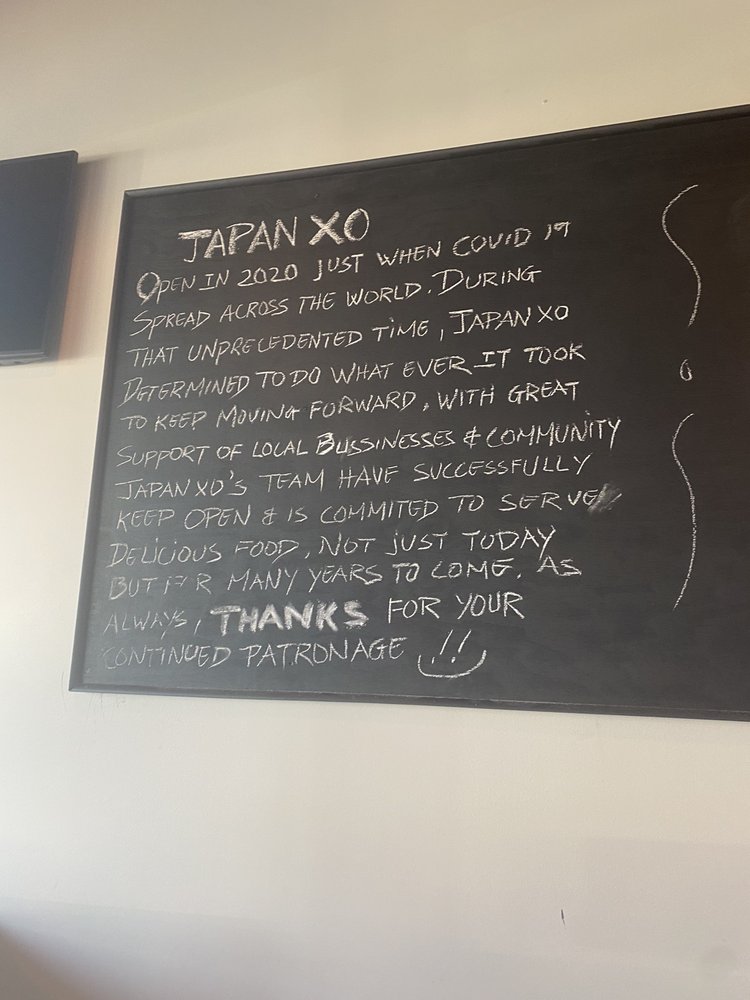 JAPAN XO
OPEN IN 2020 JUST WHEN COVID 19
SPREAD ACROSS THE WORLD. DURING
THAT UNPRECEDENTED TIME, JAPAN XO
DETERMINED TO DO WHAT EVER IT TOOK
TO KEEP MOVING FORWARD, WITH GREAT
SUPPORT OF LOCAL BUSSINESSES & COMMUNITY
JAPAN XO'S TEAM HAVE SUCCESSFULLY
KEEP OPEN & IS COMMITED TO SERVE
DELICIOUS FOOD, NOT JUST TODAY
BUT FOR MANY YEARS TO COME. AS
ALWAYS, THANKS FOR YOUR
CONTINUED PATRONAGE !!